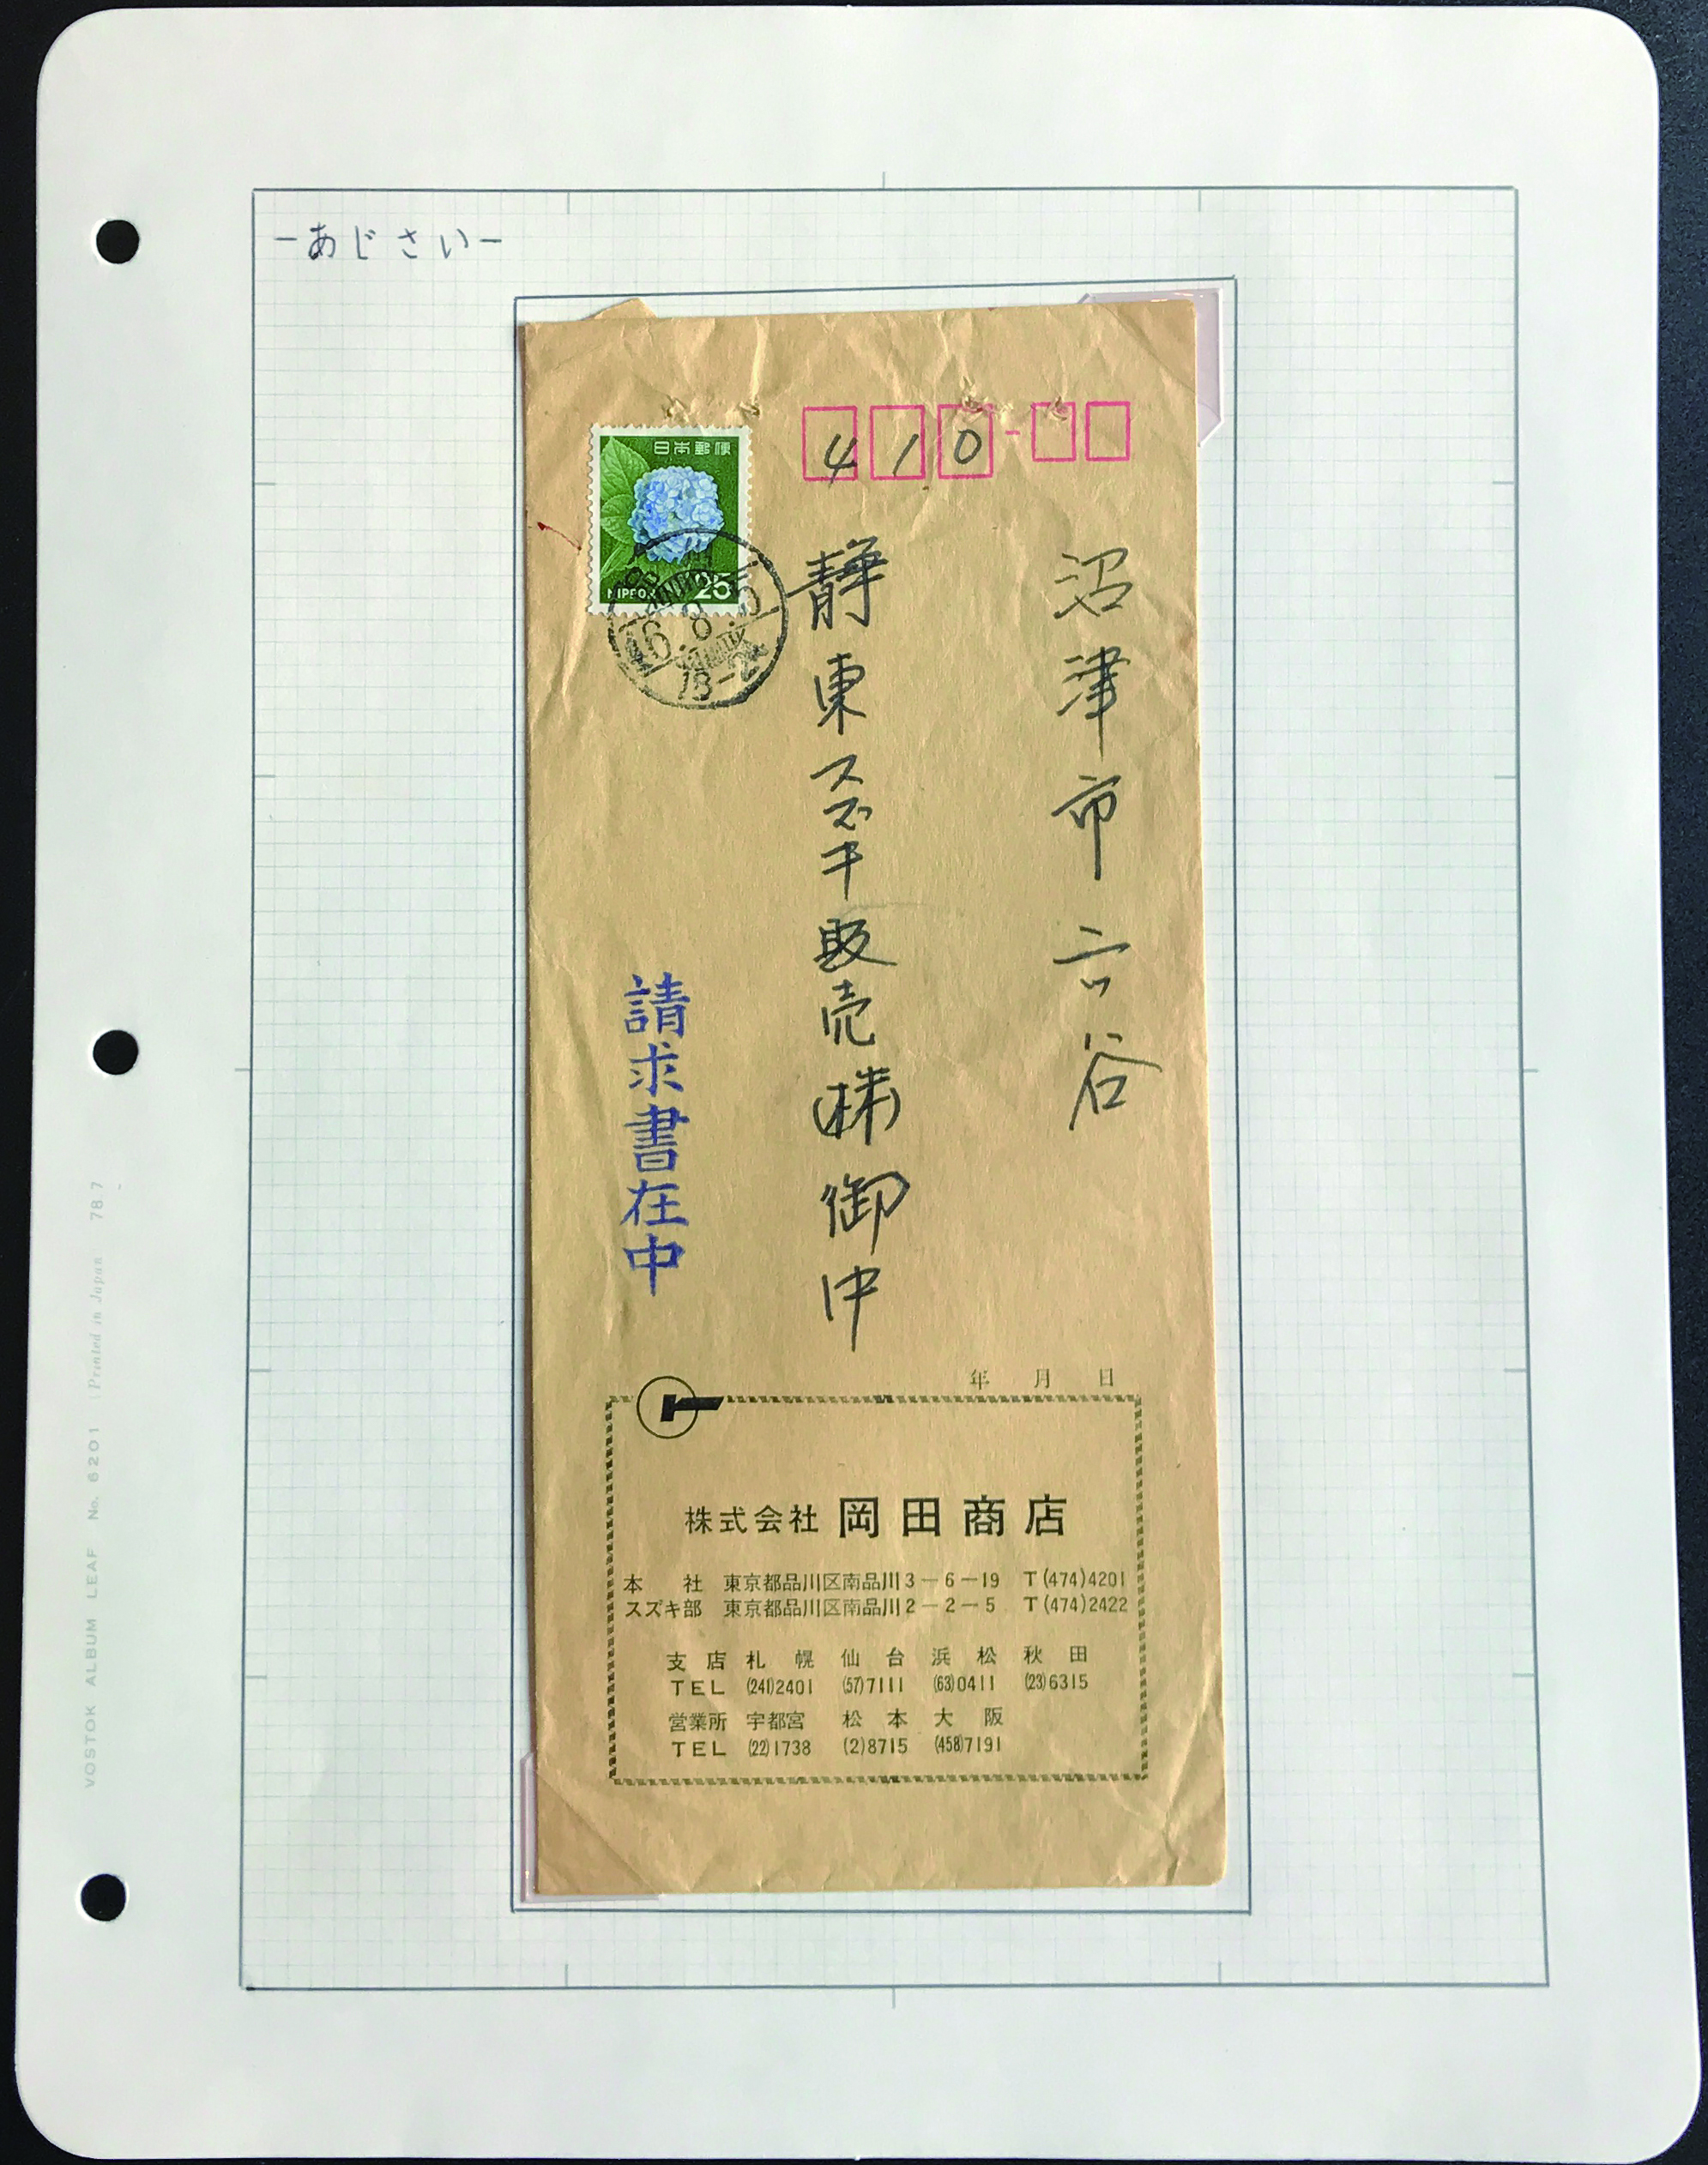 -あじさい-
日本郵便
NIPPON 25
410
沼津市六谷
静東スズキ販売(株)御中
請求書在中
年 月 日
株式会社 岡田商店
本 社 東京都品川区南品川3-6-19 T(474)4201
スズキ部 東京都品川区南品川2-2-5 T(474)2422
支店 札幌 仙台 浜松 秋田
TEL (241)2401 (57)7111 (63)0411 (23)6315
営業所 宇都宮 松本 大阪
TEL (22)1738 (2)8715 (458)7191
VOSTOK ALBUM LEAF No. 6201 (Printed in Japan 787